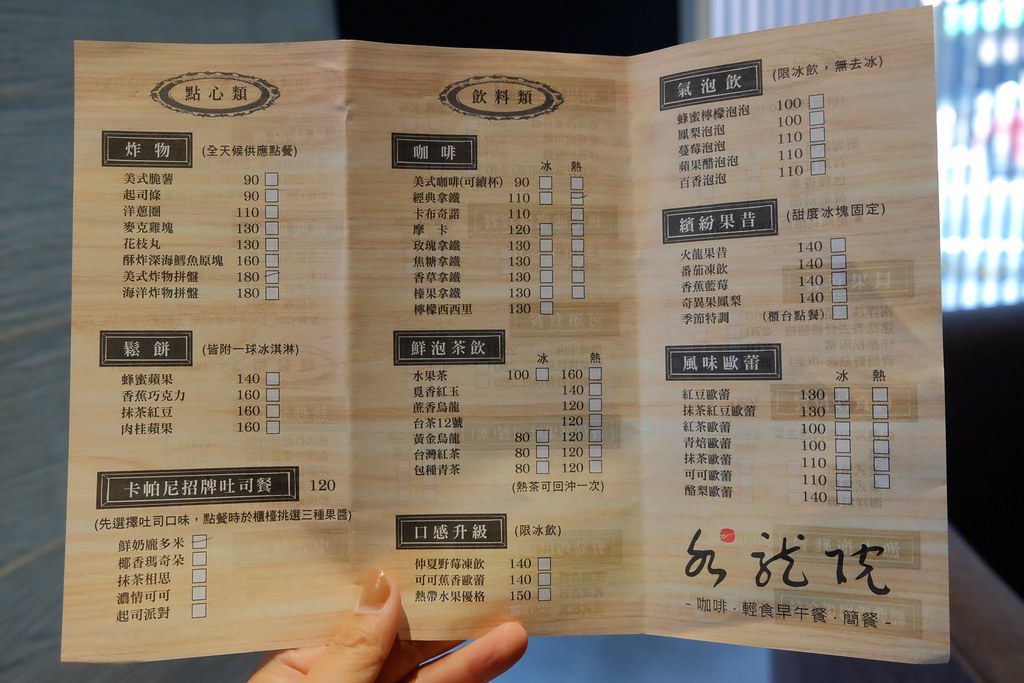 點心類
炸物 (全天候供應點餐)
美式脆薯 90
起司條 90
洋蔥圈 110
麥克雞塊 130
花枝丸 130
酥炸深海鱈魚原塊 160
美式炸物拼盤 180
海洋炸物拼盤 180
鬆餅 (皆附一球冰淇淋)
蜂蜜蘋果 140
香蕉巧克力 160
抹茶紅豆 160
肉桂蘋果 160
卡帕尼招牌吐司餐 120
(先選擇吐司口味，點餐時於櫃檯挑選三種果醬)
鮮奶龐多米
椰香瑪奇朵
抹茶相思
濃情可可
起司派對
飲料類
咖啡 冰 熱
美式咖啡(可續杯) 90
經典拿鐵 110
卡布奇諾 110
摩卡 120
玫瑰拿鐵 130
焦糖拿鐵 130
香草拿鐵 130
榛果拿鐵 130
檸檬西西里 130
鮮泡茶飲 冰 熱
水果茶 100 160
覓香紅玉 140
蔗香烏龍 120
台茶12號 120
黃金烏龍 80 120
台灣紅茶 80 120
包種青茶 80 120
(熱茶可回沖一次)
口感升級 (限冰飲)
仲夏野莓凍飲 140
可可蕉香歐蕾 140
熱帶水果優格 150
氣泡飲 (限冰飲，無去冰)
蜂蜜檸檬泡泡 100
鳳梨泡泡 100
蔓莓泡泡 110
蘋果醋泡泡 110
百香泡泡 110
繽紛果昔 (甜度冰塊固定)
火龍果昔 140
番茄凍飲 140
香蕉藍莓 140
奇異果鳳梨 140
季節特調 (櫃台點餐)
風味歐蕾 冰 熱
紅豆歐蕾 130
抹茶紅豆歐蕾 130
紅茶歐蕾 100
青焙歐蕾 100
抹茶歐蕾 110
可可歐蕾 110
酪梨歐蕾 140
水龍院
- 咖啡．輕食早午餐．簡餐 -